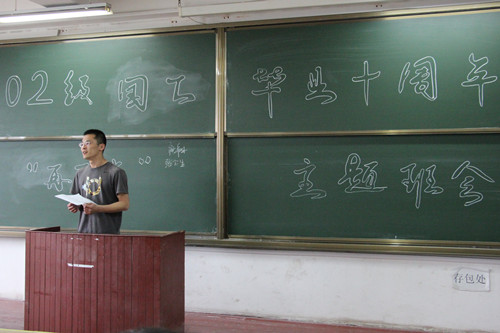 02级 工 毕业十周年
“再 ” 主题班会
存包处